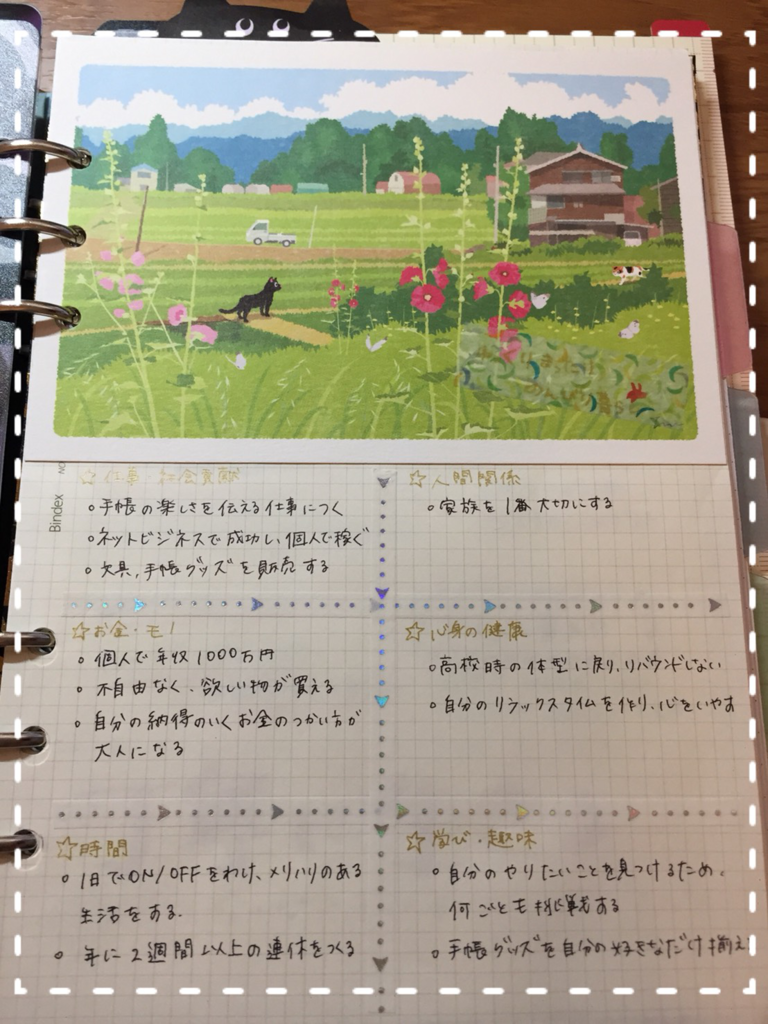 Bindex
☆仕事・社会貢献
○手帳の楽しさを伝える仕事につく
○ネットビジネスで成功し、個人で稼ぐ
○文具、手帳グッズを販売する
☆人間関係
○家族を1番大切にする
☆お金・モノ
○個人で年収1000万円
○不自由なく、欲しい物が買える
○自分の納得のいくお金のつかい方が
大人になる
☆心身の健康
○高校時の体型に戻り、リバウンドしない
○自分のリラックスタイムを作り、心をいやす
☆時間
○1日でON/OFFをわけ、メリハリのある
生活をする。
○年に2週間以上の連休をつくる
☆学び・趣味
○自分のやりたいことを見つけるため、
何ごとも挑戦する
○手帳グッズを自分の好きなだけ揃え